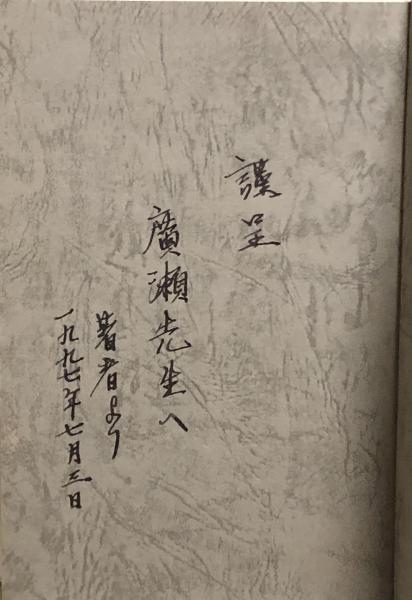 謹呈
廣瀬先生へ
著者より
一九九七年七月三日